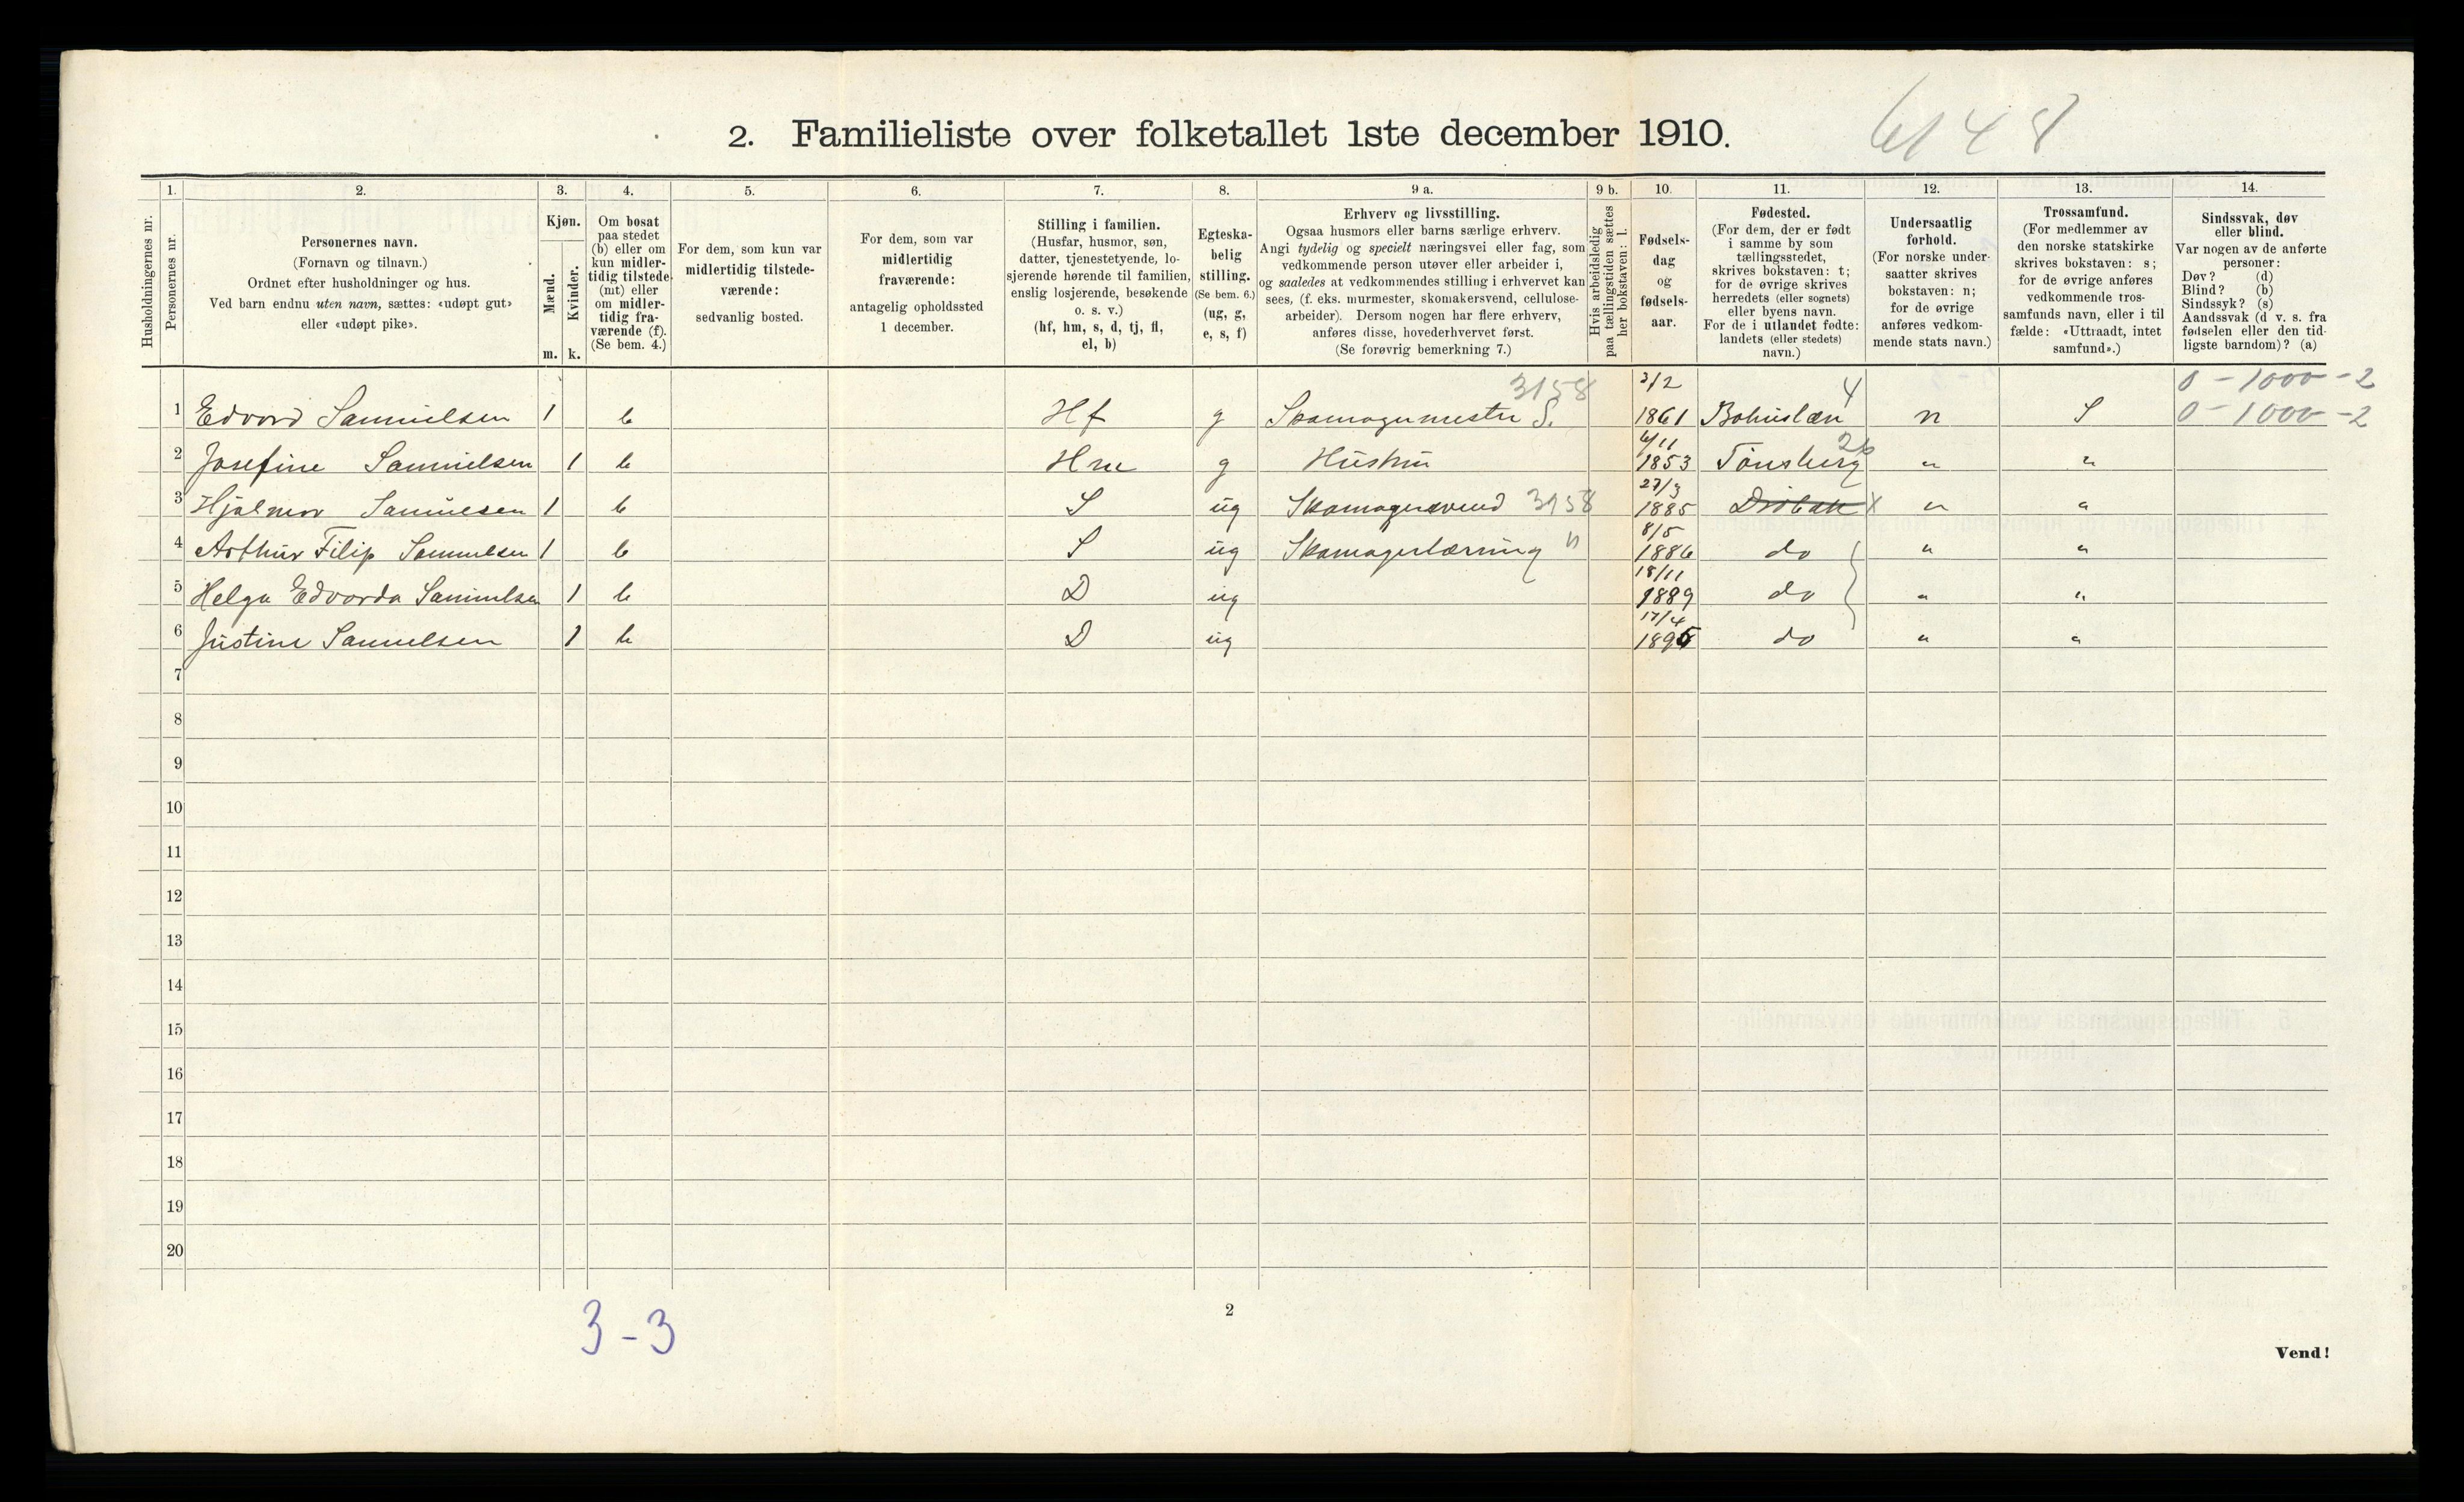 2. Familieliste over folketallet 1ste december 1910.
6148
Husholdningernes nr.
1. Personernes nr.
2. Personernes navn. (Fornavn og tilnavn.) Ordnet efter husholdninger og hus. Ved barn endnu uten navn, sættes: «udøpt gut» eller «udøpt pike».
3. Kjøn. Mænd. m. Kvinder. k.
4. Om bosat paa stedet (b) eller om kun midlertidig tilstede (mt) eller om midlertidig fraværende (f). (Se bem. 4.)
5. For dem, som kun var midlertidig tilstedeværende: sedvanlig bosted.
6. For dem, som var midlertidig fraværende: antagelig opholdssted 1 december.
7. Stilling i familien. (Husfar, husmor, søn, datter, tjenestetyende, losjerende hørende til familien, enslig losjerende, besøkende o. s. v.) (hf, hm, s, d, tj, fl, el, b)
8. Egteskabelig stilling. (Se bem. 6.) (ug, g, e, s, f)
9 a. Erhverv og livsstilling. Ogsaa husmors eller barns særlige erhverv. Angi tydelig og specielt næringsvei eller fag, som vedkommende person utøver eller arbeider i, og saaledes at vedkommendes stilling i erhvervet kan sees, (f. eks. murmester, skomakersvend, cellulosearbeider). Dersom nogen har flere erhverv, anføres disse, hovederhvervet først. (Se forøvrig bemerkning 7.)
9 b. Hvis arbeidsledig paa tællingstiden sættes her bokstaven: l.
10. Fødselsdag og fødselsaar.
11. Fødested. (For dem, der er født i samme by som tællingsstedet, skrives bokstaven: t; for de øvrige skrives herredets (eller sognets) eller byens navn. For de i utlandet fødte: landets (eller stedets) navn.)
12. Undersaatlig forhold. (For norske undersaatter skrives bokstaven: n; for de øvrige anføres vedkommende stats navn.)
13. Trossamfund. (For medlemmer av den norske statskirke skrives bokstaven: s; for de øvrige anføres vedkommende trossamfunds navn, eller i tilfælde: «Uttraadt, intet samfund».)
14. Sindssvak, døv eller blind. Var nogen av de anførte personer: Døv? (d) Blind? (b) Sindssyk? (s) Aandssvak (d v. s. fra fødselen eller den tidligste barndom)? (a)
3158 3/2 4 0-1000-2
1 Edvard Samuelsen 1 b Hf g Skomagermester S. 1861 Bohuslæn n S 0-1000-2
2 Josefine Samuelsen 1 b Hm g Hustru 6/11 1853 Tønsberg 26 " "
3 Hjalmar Samuesen 1 b S ug Skomagersvend 3158 27/3 1885 Drøbak X " "
4 Arthur Filip Samuelsen 1 b S ug Skomagerlærning " 8/5 1886 do " "
5 Helga Edvarda Samuelsen 1 b D ug 18/11 1889 do " "
6 Justine Samuelsen 1 b D ug 17/4 1895 do " "
7
8
9
10
11
12
13
14
15
16
17
18
19
20
3-3
2
Vend!